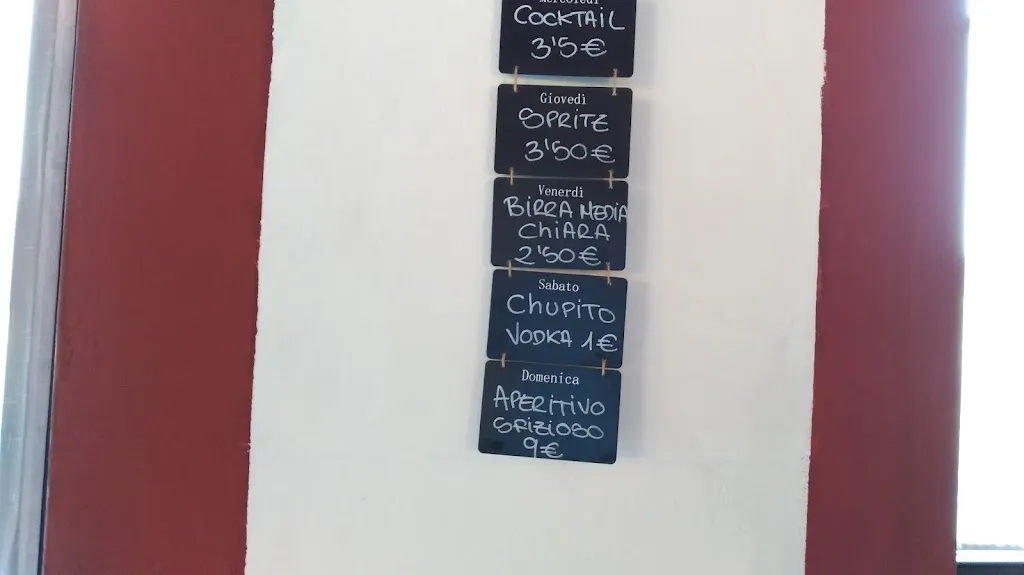 Mercoledì
COCKTAIL
3'5€
Giovedì
SPRITZ
3'50€
Venerdì
BIRRA MEDIA
CHIARA
2'50€
Sabato
CHUPITO
VODKA 1€
Domenica
APERITIVO
SFIZIOSO
9€